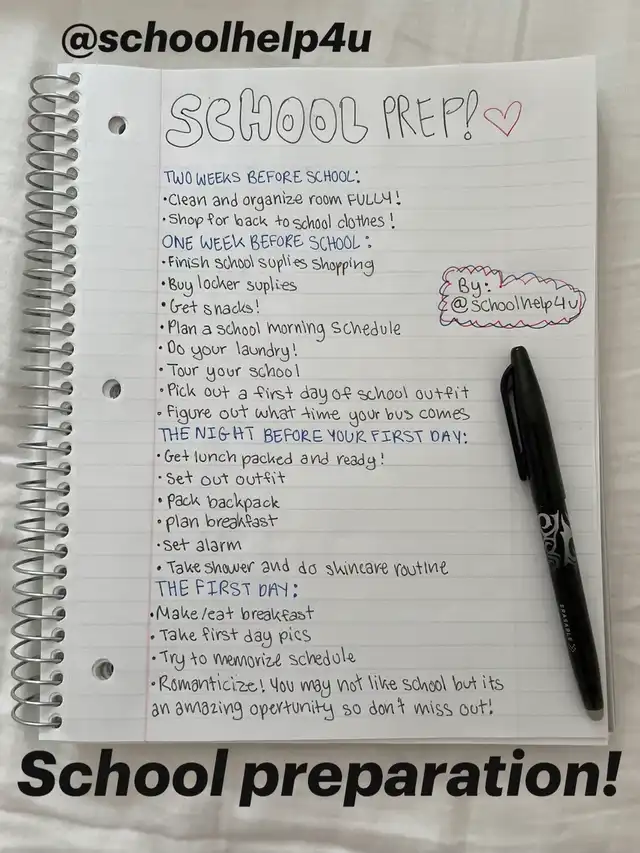 @schoolhelp4u
SCHOOL PREP!
TWO WEEKS BEFORE SCHOOL:
•Clean and organize room FULLY!
•Shop for back to school clothes!
ONE WEEK BEFORE SCHOOL:
•Finish school suplies shopping
•Buy locker suplies
•Get snacks!
•Plan a school morning schedule
•Do your laundry!
•Tour your school
•Pick out a first day of school outfit
•Figure out what time your bus comes
By:
@schoolhelp4u
THE NIGHT BEFORE YOUR FIRST DAY:
•Get lunch packed and ready!
•Set out outfit
•Pack backpack
•plan breakfast
•Set alarm
•Take shower and do skincare routine
THE FIRST DAY:
•Make/eat breakfast
•Take first day pics
•Try to memorize schedule
•Romanticize! You may not like school but its
an amazing opertunity so don't miss out!
ERASABLE
School preparation!